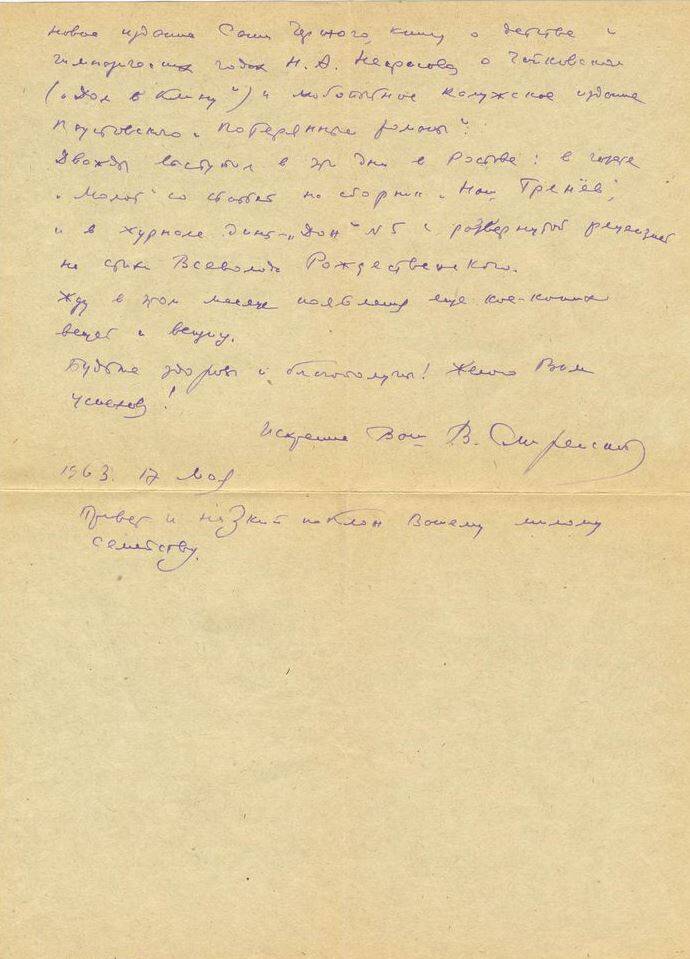 новое издание Саши Черного, книгу о детстве и
гимназических годах Н. А. Некрасова, о Чайковском
(„Дом в Клину") и любопытное калужское издание
Паустовского „Потерянные романы".
Дважды выступил в эти дни в Ростове: в газете
„Молот" со статьей на сборник „Наш Тренёв",
и в журнале „Дон" № 5 с развернутой рецензией
на стихи Всеволода Рождественского.
Жду в этом месяце появления еще кое-каких
вещей и вещиц.
Будьте здоровы и благополучны! Желаю Вам
успехов!
Искренне Ваш В. Смиренский
1963. 17 мая
Привет и низкий поклон Вашему милому
семейству.